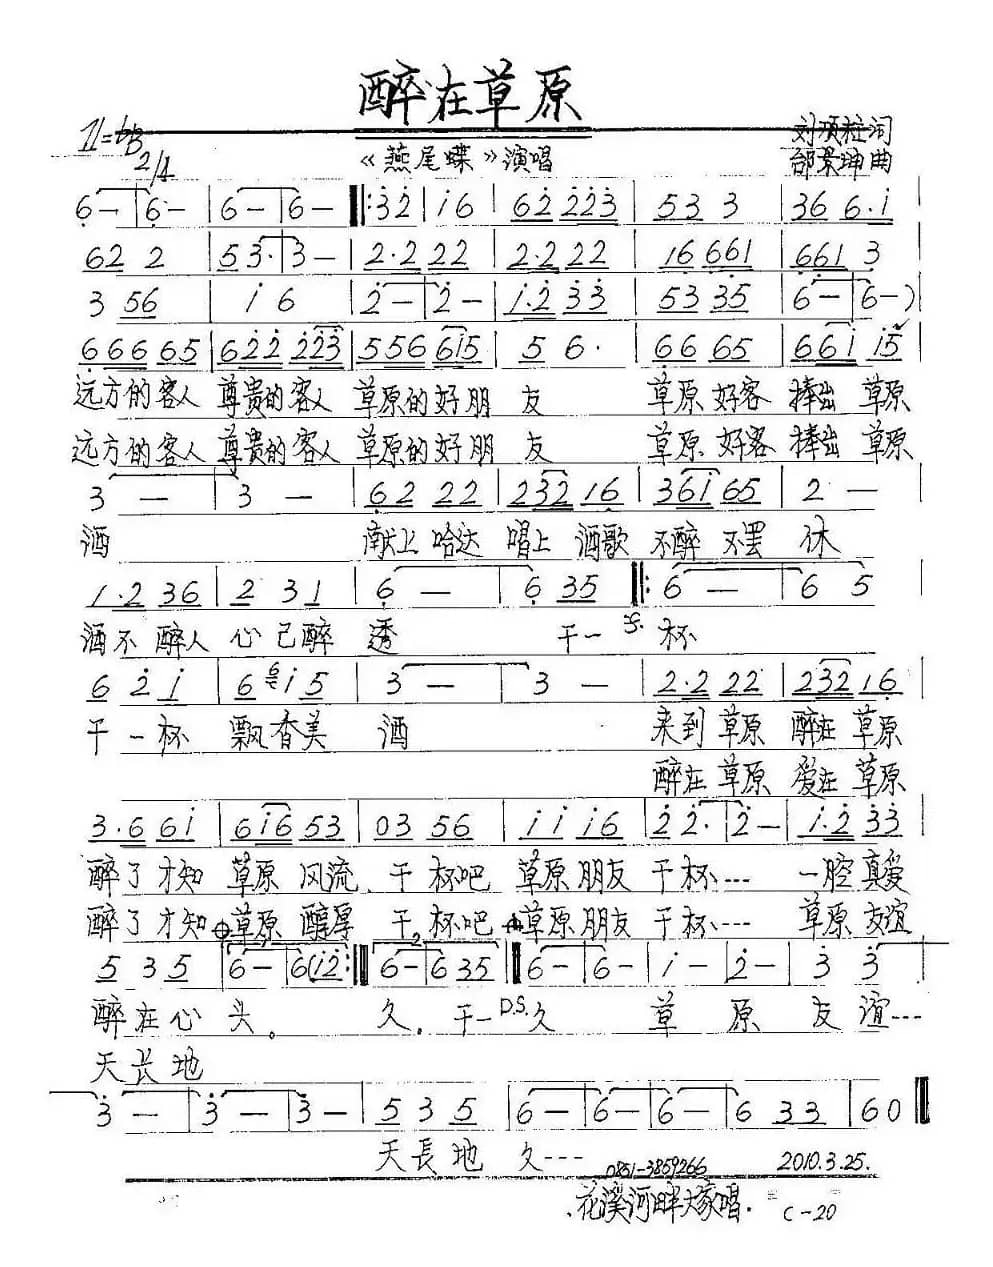 醉在草原
1=bB 2/4
《燕尾蝶》演唱
刘顶柱词
邰景珅曲
6 - | 6 - | 6 - | 6 - ‖: 3 2 | 1 6 | 6 2 2 2 3 | 5 3 3 | 3 6 6 · 1
6 2 2 | 5 3 · | 3 - | 2 · 2 2 2 | 2 · 2 2 2 | 1 6 6 6 1 | 6 6 1 3
3 5 6 | 1 6 | 2 - | 2 - | 1 · 2 3 3 | 5 3 3 5 | 6 - | 6 - )
6 6 6 6 5 | 6 2 2 2 2 3 | 5 5 6 6 1 5 | 5 6 · | 6 6 6 5 | 6 6 1 1 5
远方的客人 尊贵的客人 草原的好朋 友 草原好客 捧出 草原
远方的客人 尊贵的客人 草原的好朋 友 草原好客 捧出 草原
3 - | 3 - | 6 2 2 2 | 2 3 2 1 6 | 3 6 1 6 5 | 2 -
酒 献上哈达 唱上 酒歌 不醉 不罢 休
1 · 2 3 6 | 2 3 1 | 6 - | 6 3 5 ‖: 6 - | 6 5
酒不醉人 心已醉 透 干一 杯
6 2 1 | 6 1 5 | 3 - | 3 - | 2 · 2 2 2 | 2 3 2 1 6
干一杯 飘香美 酒 来到草原 醉在草原
醉在草原 爱在草原
3 · 6 6 1 | 6 1 6 5 3 | 0 3 5 6 | 1 1 1 6 | 2 2 · | 2 - | 1 · 2 3 3
醉了才知 草原风流 干杯吧 草原朋友 干杯--- 一腔真爱
醉了才知 草原醇厚 干杯吧 草原朋友 干杯--- 草原友谊
5 3 5 | 6 - | 6 ( 1 2 :‖ 2 6 - | 6 3 5 ‖ 6 - | 6 - | 1 - | 2 - | 3 3
醉在心头。 久。干一 D.S. 久 草原友谊---
天长地
3 - | 3 - | 3 - | 5 3 5 | 6 - | 6 - | 6 - | 6 3 3 | 6 0 ‖
天長地 久---
0851-3859266 2010.3.25.
花溪河畔大家唱. C-20